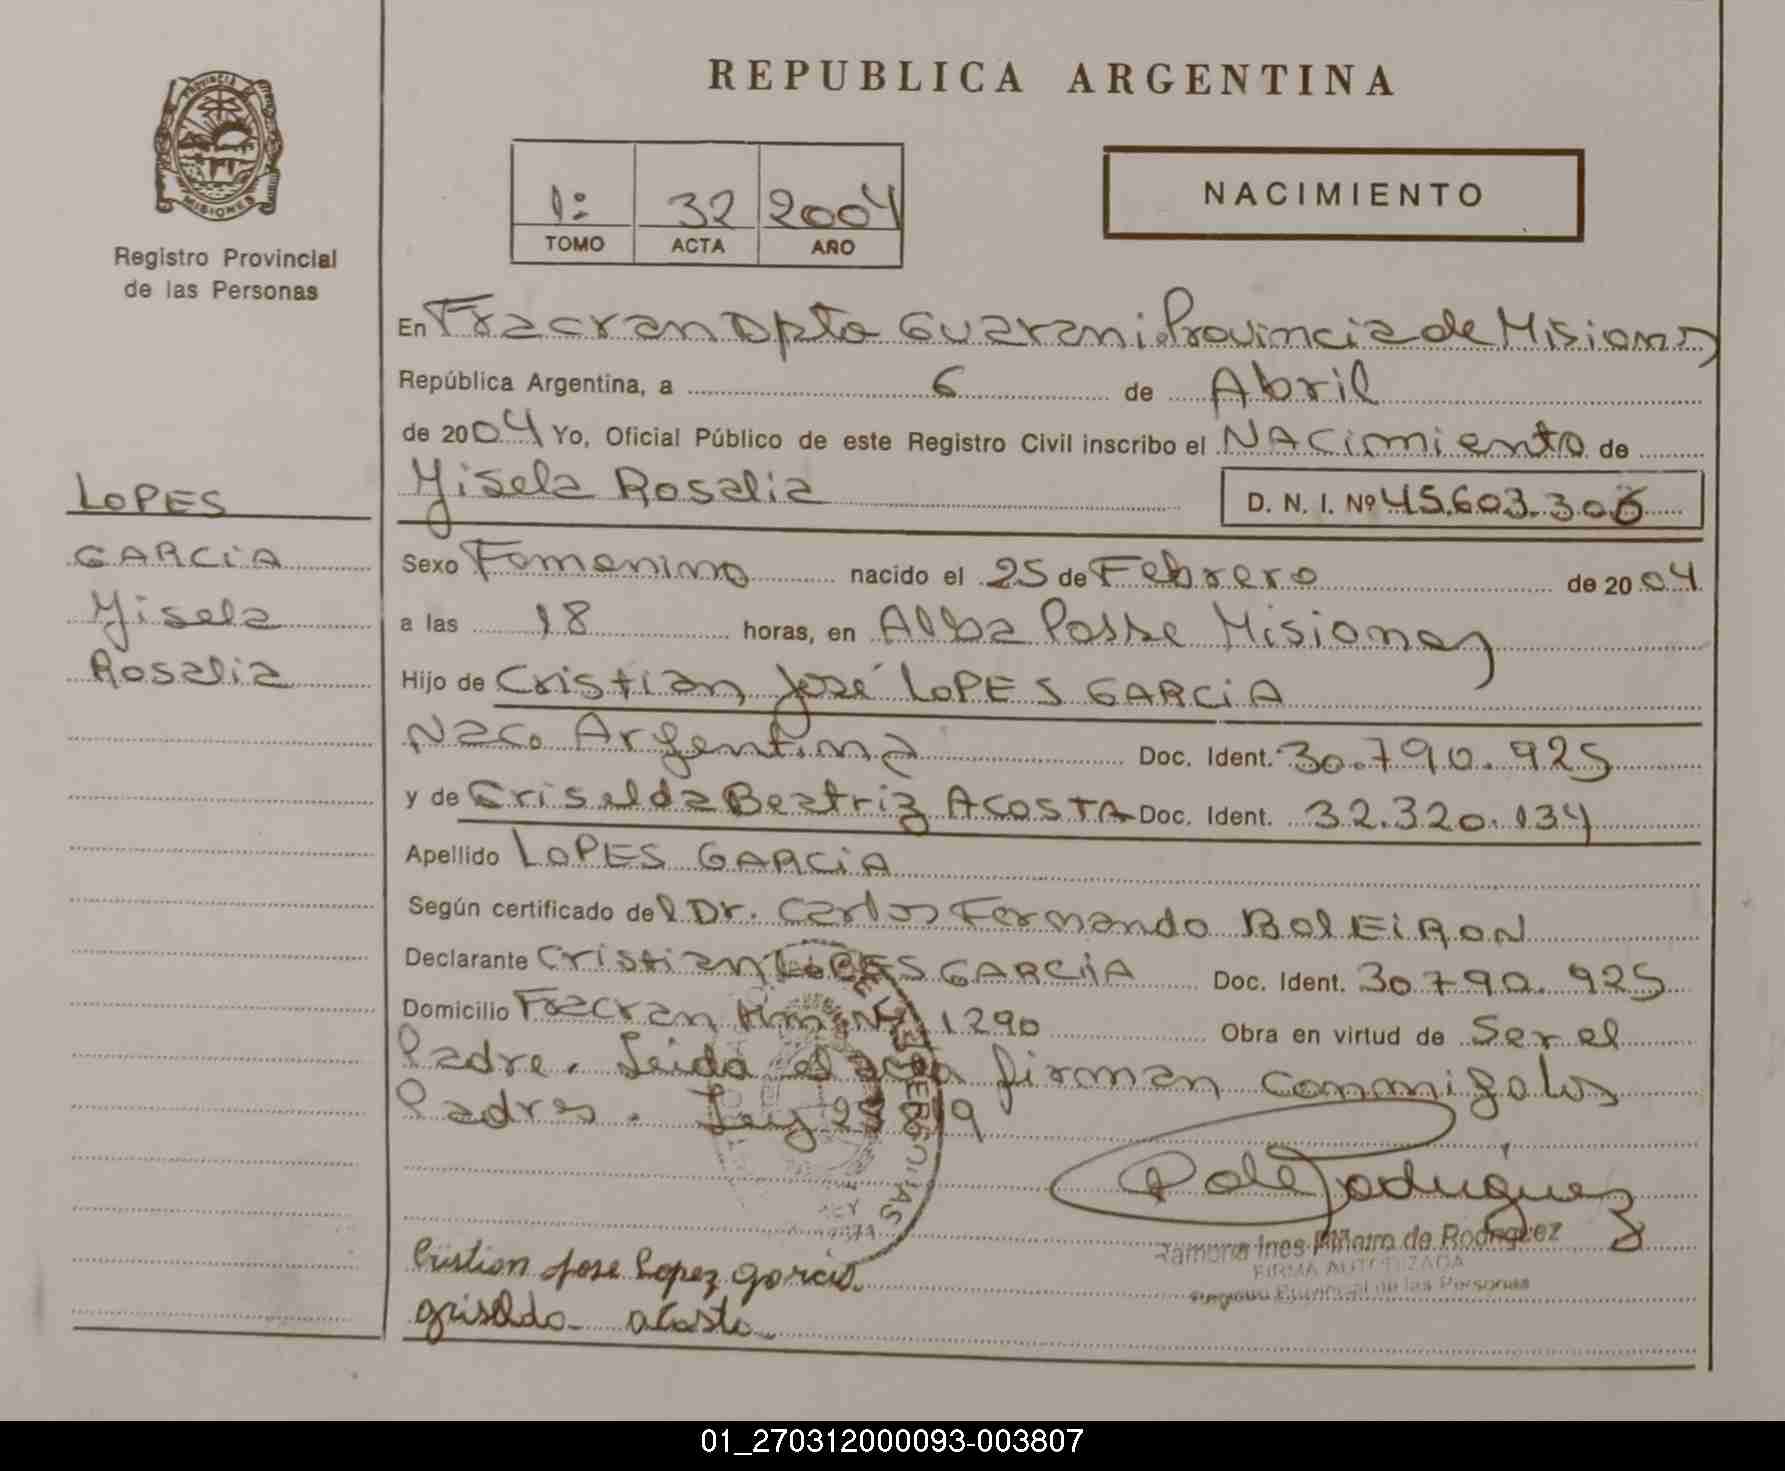 REPUBLICA ARGENTINA
PROVINCIA
MISIONES
Registro Provincial
de las Personas
1: 32 2004
TOMO ACTA AÑO
NACIMIENTO
En Fracran Dpto Guarani Provincia de Misiones
República Argentina, a 6 de Abril
de 2004 Yo, Oficial Público de este Registro Civil inscribo el NACimiento de
Yisela Rosalia D. N. I. Nº 45.603.306
LOPES
GARCiA
Yisela
Rosalia
Sexo Femenino nacido el 25 de Febrero de 2004
a las 18 horas, en Alba Posse Misiones
Hijo de Cristian José LOPES GARCiA
Nac. Argentina Doc. Ident. 30.790.925
y de Griselda Beatriz ACOSTA Doc. Ident. 32.320.134
Apellido LOPES GARCiA
Según certificado del Dr. Carlos Fernando BOLEiRON
Declarante Cristian LOPES GARCiA Doc. Ident. 30790.925
Domicilio Fracran 1290 Obra en virtud de Ser el
Padre. Leida el acta firman conmigo los
Padres. Ley
Ramona Ines Miñarro de Rodriguez
FIRMA AUTORIZADA
Registro Provincial de las Personas
Cristian Jose Lopez garcia
griselda acosta
01_270312000093-003807